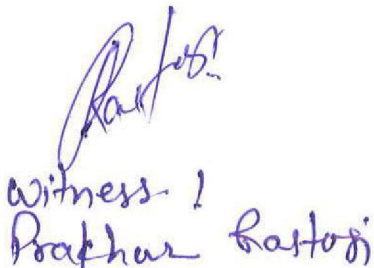 Rastogi
witness !
Prakhar Rastogi